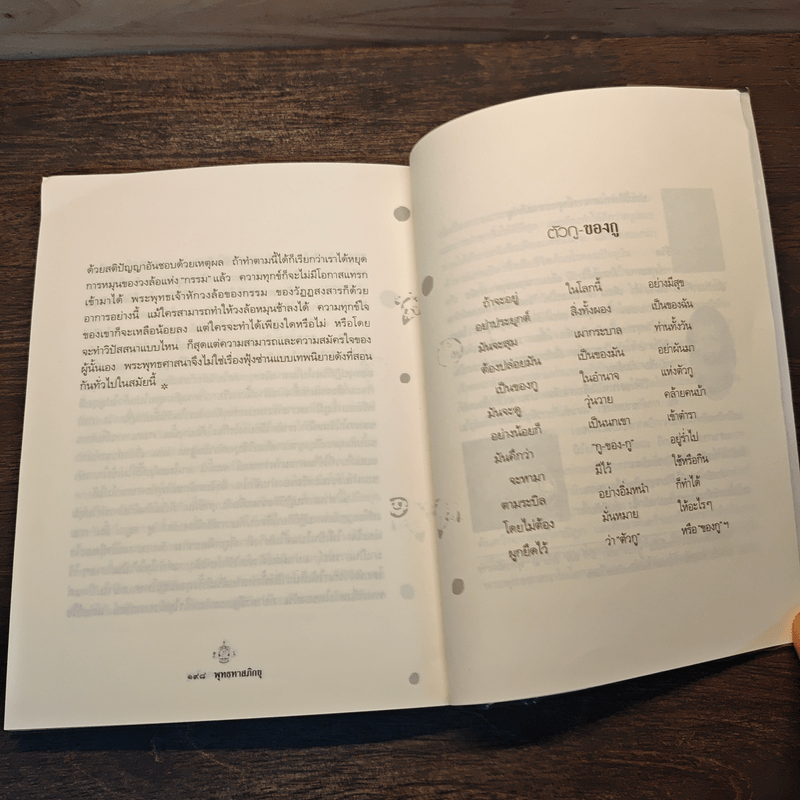 ด้วยสติปัญญาอันชอบด้วยเหตุผล ถ้าทำตามนี้ได้ก็เรียกว่าเราได้หยุด
การหมุนของวงล้อแห่ง "กรรม" แล้ว ความทุกข์ก็จะไม่มีโอกาสแทรก
เข้ามาได้ พระพุทธเจ้าหักวงล้อของกรรม ของวัฏฏสงสารก็ด้วย
อาการอย่างนี้ แม้ใครสามารถทำให้วงล้อหมุนช้าลงได้ ความทุกข์ใจ
ของเขาก็จะเหลือน้อยลง แต่ใครจะทำได้เพียงใดหรือไม่ หรือโดย
จะทำวิปัสสนาแบบไหน ก็สุดแต่ความสามารถและความสมัครใจของ
ผู้นั้นเอง พระพุทธศาสนาจึงไม่ใช่เรื่องฟุ้งซ่านแบบเทพนิยายดังที่สอน
กันทั่วไปในสมัยนี้
๑๙๘ พุทธทาสภิกขุ
ตัวกู-ของกู
ถ้าจะอยู่ ในโลกนี้ อย่างมีสุข
อย่าประยุกต์ สิ่งทั้งผอง เป็นของฉัน
มันจะสุม เผากระบาล ท่านทั้งวัน
ต้องปล่อยมัน เป็นของมัน อย่าผันมา
เป็นของกู ในอำนาจ แห่งตัวกู
มันจะดู วุ่นวาย คล้ายคนบ้า
อย่างน้อยก็ เป็นนกเขา เข้าตำรา
มันคึกว่า "กู-ของ-กู" อยู่ร่ำไป
จะหามา มีไว้ ใช้หรือกิน
ตามระบิล อย่างอิ่มหนำ ก็ทำได้
โดยไม่ต้อง มั่นหมาย ให้อะไรๆ
ผูกยึดไว้ ว่า "ตัวกู" หรือ "ของกู" ฯ